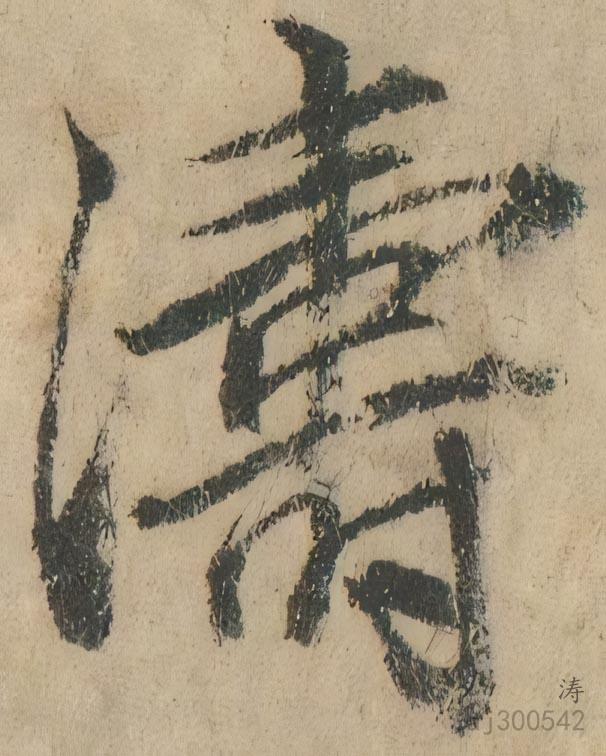 濤
涛
j300542